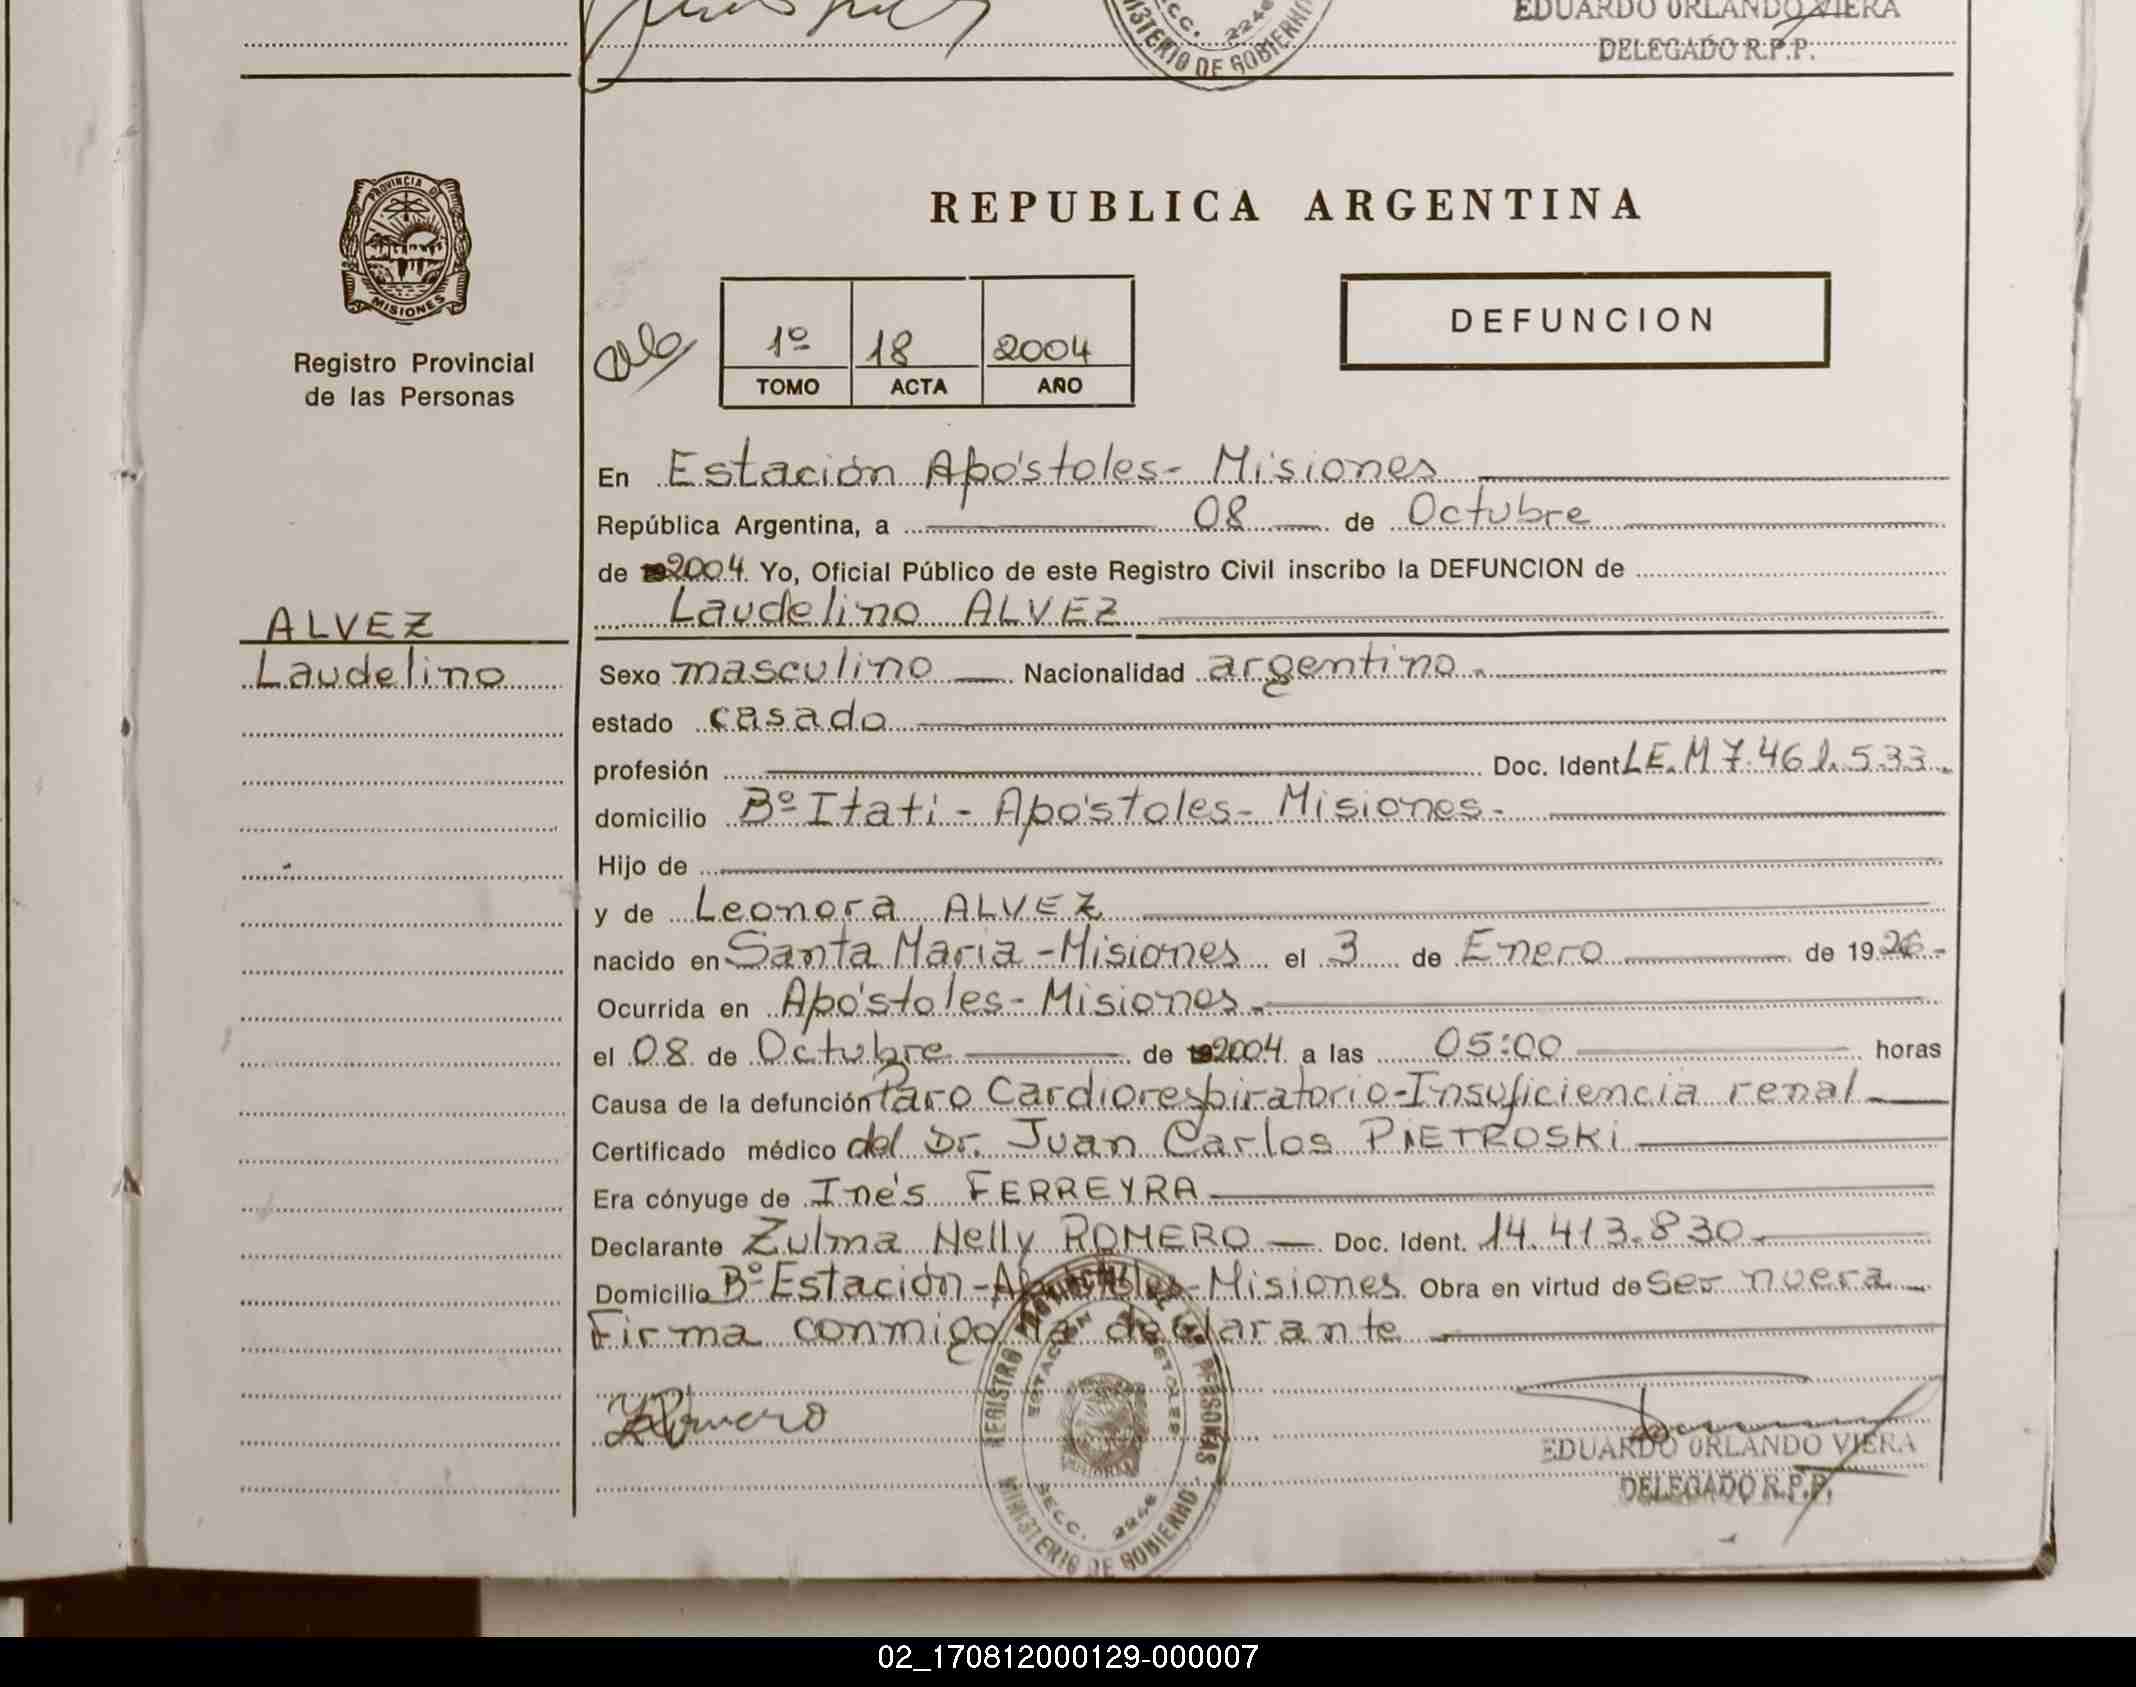 EDUARDO ORLANDO VIERA
DELEGADO R.P.P.
SECC. 2246
MINISTERIO DE GOBIERNO
PROVINCIA DE
MISIONES
Registro Provincial
de las Personas
REPUBLICA ARGENTINA
1º 18 2004
TOMO ACTA AÑO
DEFUNCION
En Estación Apóstoles - Misiones
República Argentina, a 08 de Octubre
de 2004. Yo, Oficial Público de este Registro Civil inscribo la DEFUNCION de
Laudelino ALVEZ
ALVEZ
Laudelino
Sexo masculino Nacionalidad argentino.
estado casado
profesión Doc. Ident LE. M 7.461.533.
domicilio Bº Itatí - Apóstoles - Misiones -
Hijo de
y de Leonora ALVEZ
nacido en Santa Maria - Misiones el 3 de Enero de 1926 -
Ocurrida en Apóstoles - Misiones -
el 08 de Octubre de 2004 a las 05:00 horas
Causa de la defunción Paro Cardiorespiratorio - Insuficiencia renal
Certificado médico del Dr. Juan Carlos PIETROSKI
Era cónyuge de Inés FERREYRA
Declarante Zulma Nelly ROMERO Doc. Ident. 14.413.830
Domicilio Bº Estación - Apóstoles - Misiones Obra en virtud de ser nuera
Firma conmigo la declarante
ZRomero
REGISTRO PROVINCIAL DE LAS PERSONAS
ESTACION APOSTOLES
SECC. 2246
MINISTERIO DE GOBIERNO
EDUARDO ORLANDO VIERA
DELEGADO R.P.P.
02_170812000129-000007